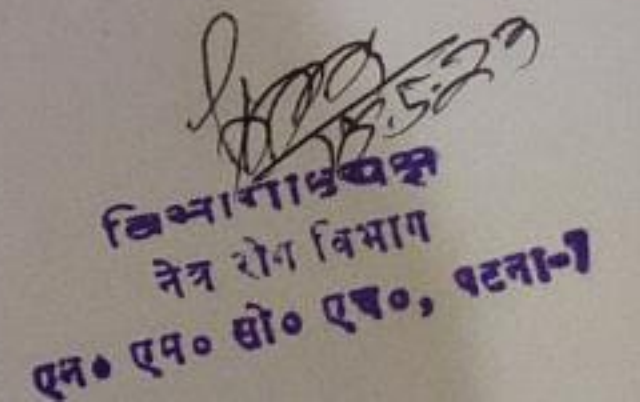 18.5.23
विभागाध्यक्ष
नेत्र रोग विभाग
एन॰ एम॰ सी॰ एच॰, पटना-7